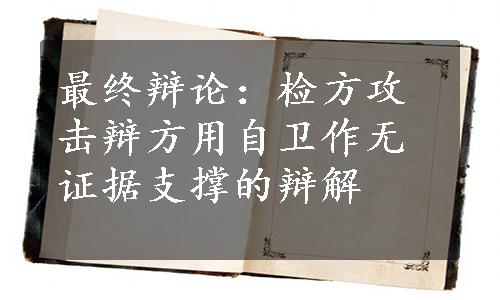 最终辩论：检方攻
击辩方用自卫作无
证据支撑的辩解